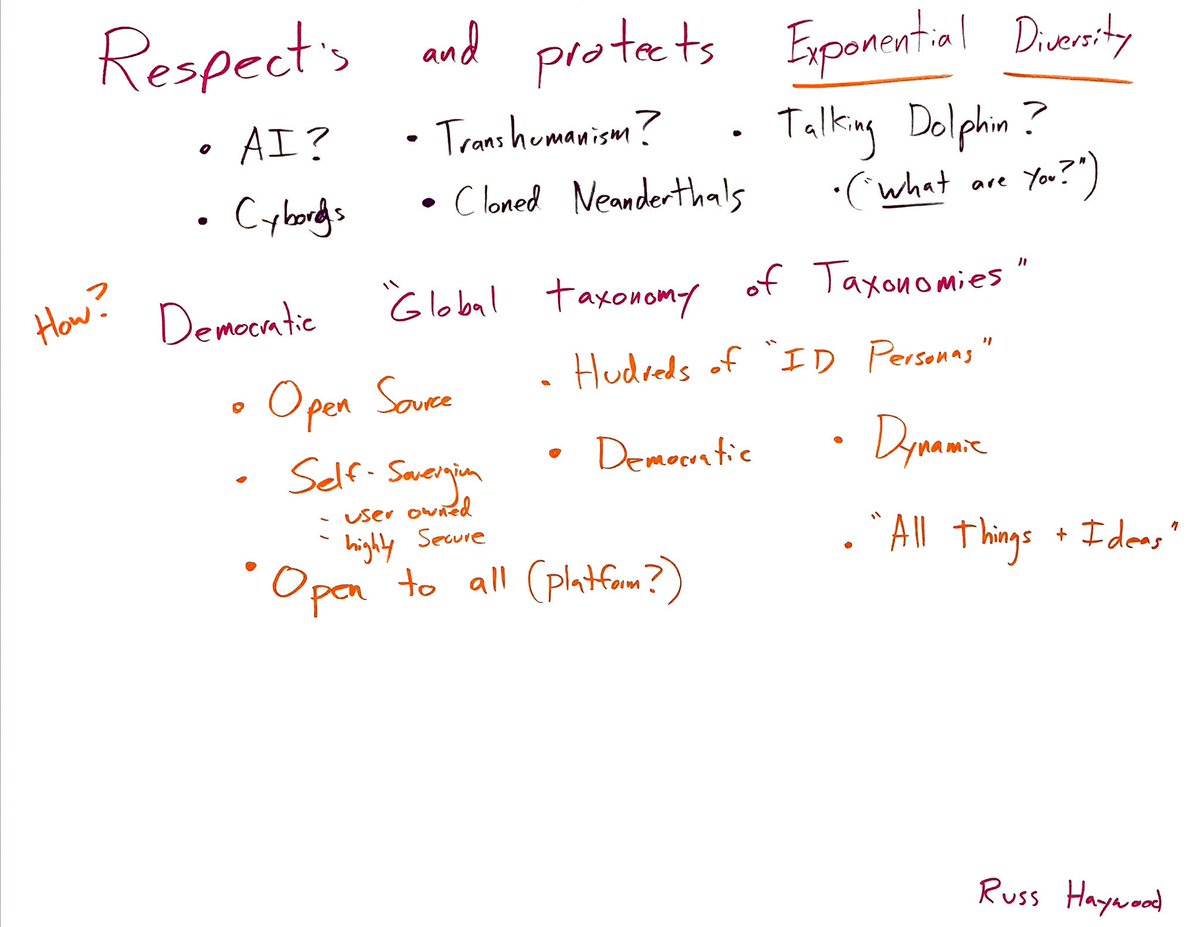 Respect's and protects Exponential Diversity
• AI? • Transhumanism? • Talking Dolphin?
• Cyborgs • Cloned Neanderthals • ("What are you?")
How? Democratic "Global taxonomy of Taxonomies"
• Open Source • Hudreds of "ID Personas"
• Self-Sovergign • Democratic • Dynamic
- user owned
- highly Secure • "All things + Ideas"
• Open to all (platform?)
Russ Haywood